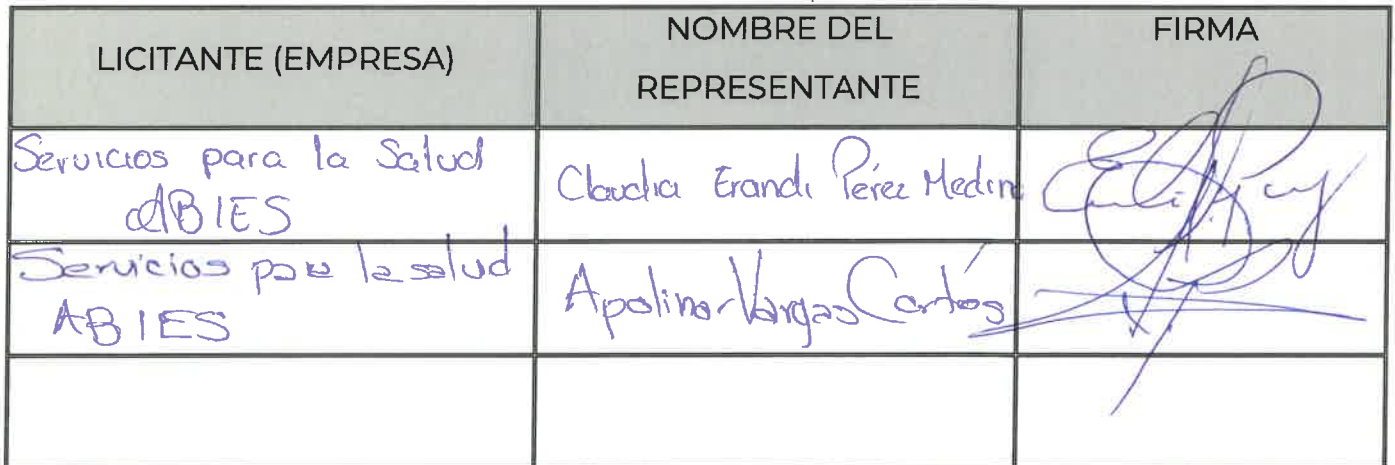 LICITANTE (EMPRESA)
NOMBRE DEL
REPRESENTANTE
FIRMA
Servicios para la Salud
ABIES
Claudia Erandi Pérez Medina
Servicios para la salud
ABIES
Apolinar Vargas Cortés